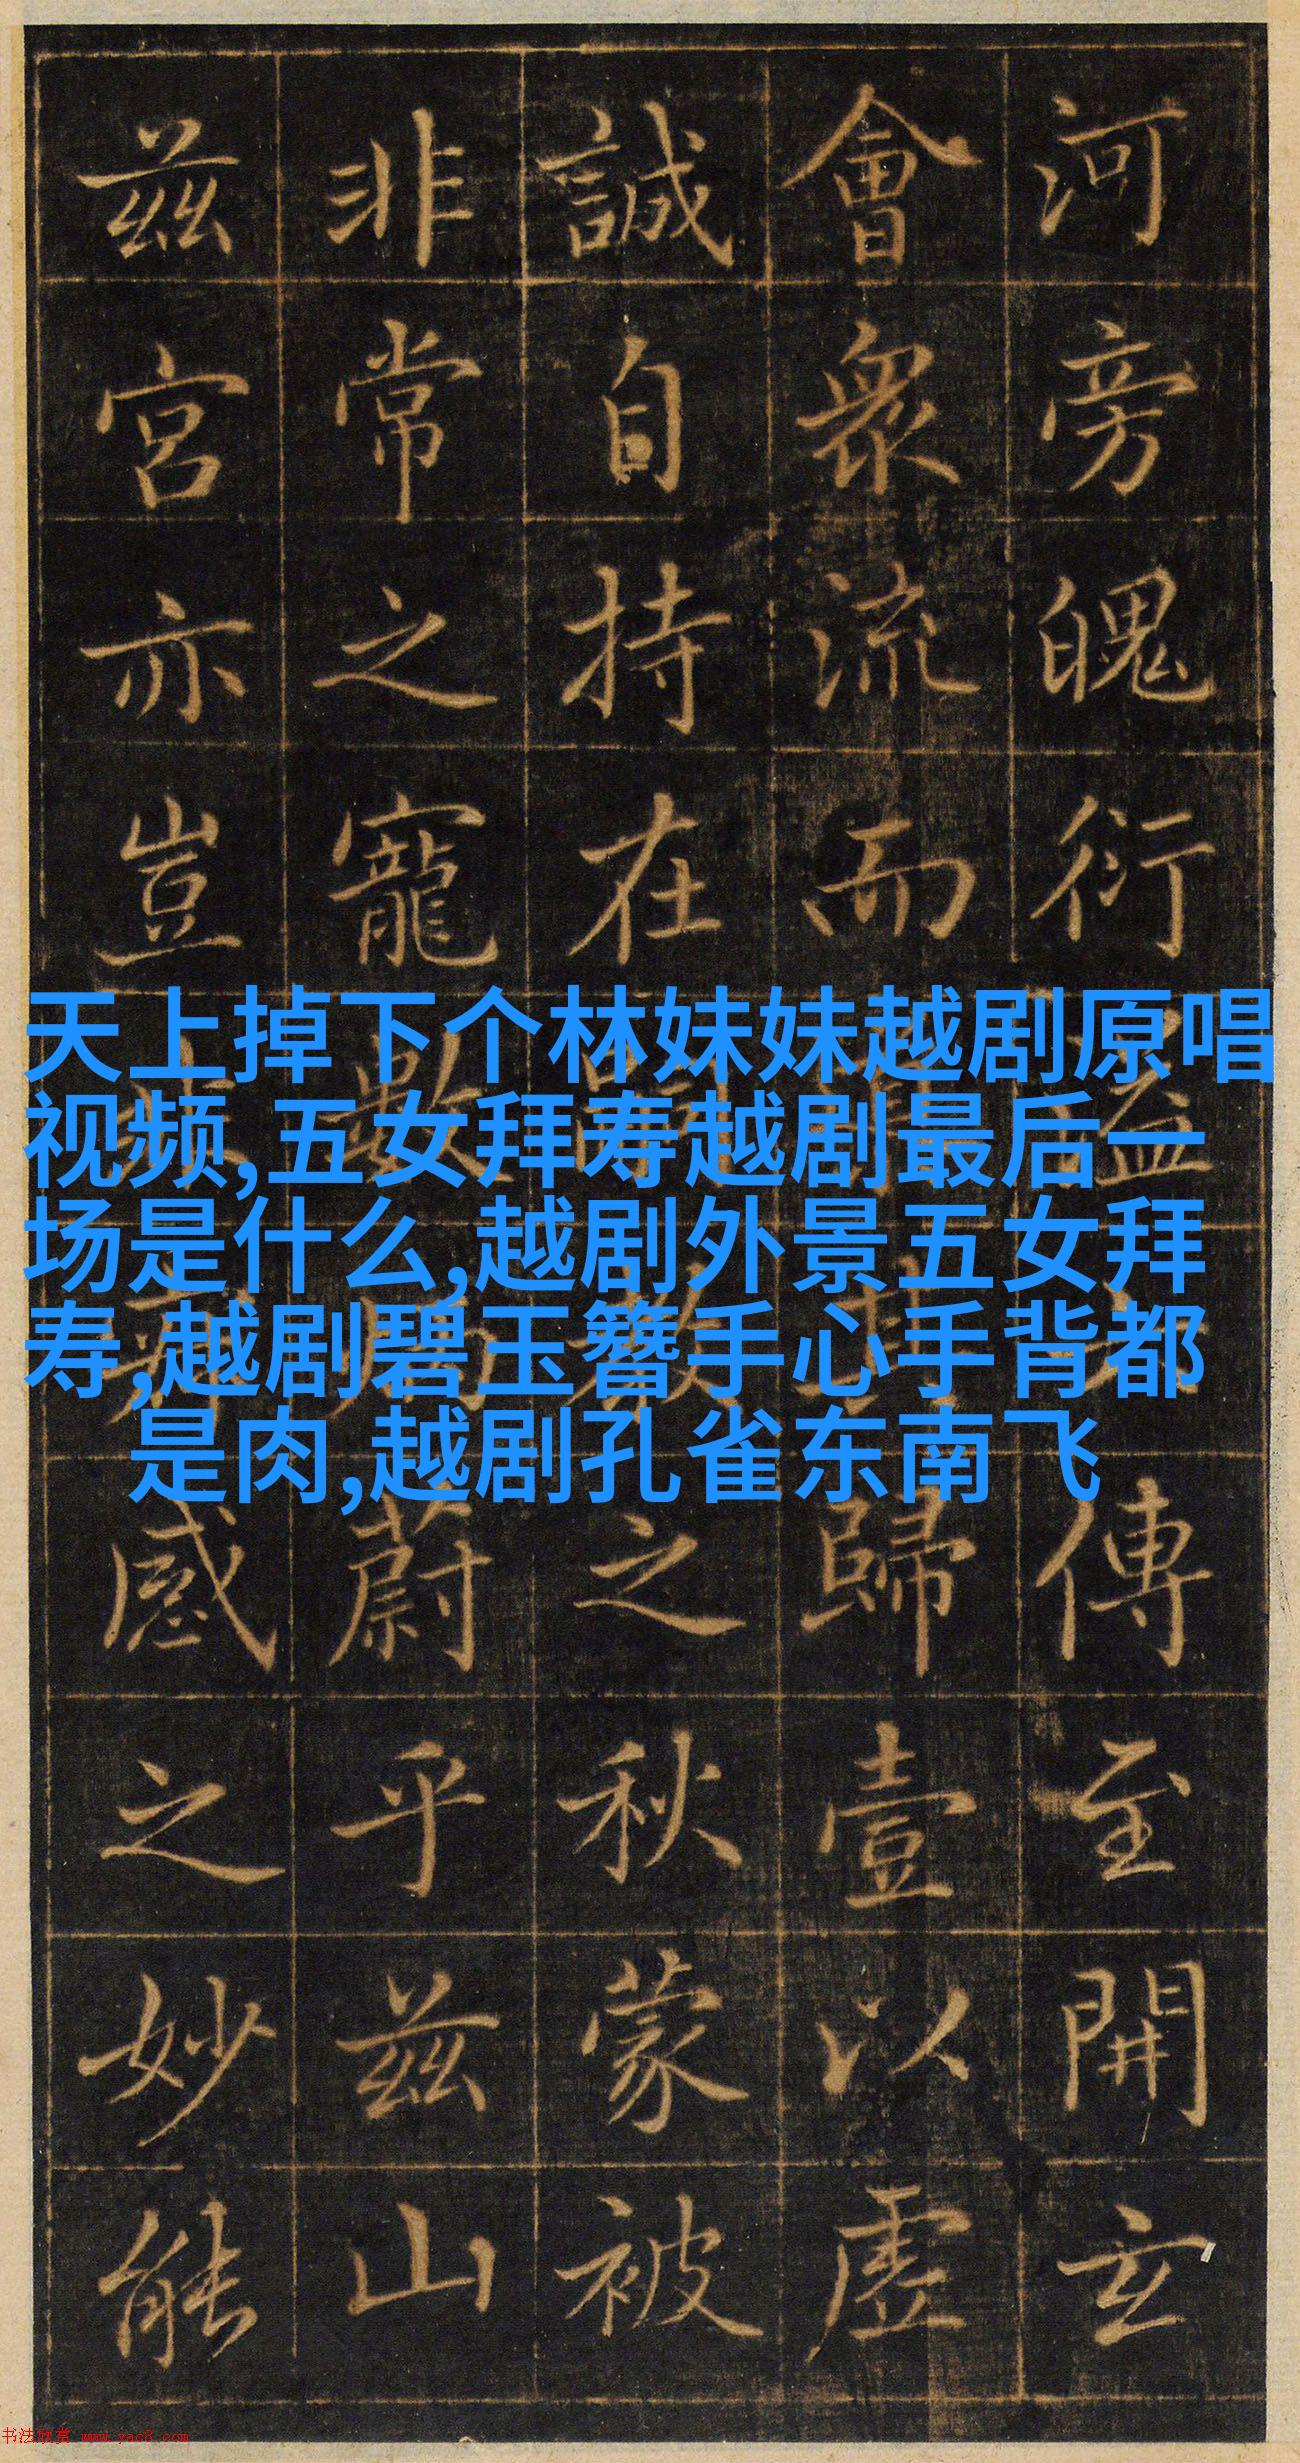 河旁魄衍傳至開玄
會衆流而歸壹以虛
誠自持在之秋蒙被
非常之寵蔚乎兹山
兹宮亦豈感之妙能
天上掉下个林妹妹越剧原唱
视频,五女拜寿越剧最后一
场是什么,越剧外景五女拜
寿,越剧碧玉簪手心手背都
是肉,越剧孔雀东南飞
书法欣赏 www.yac8.com